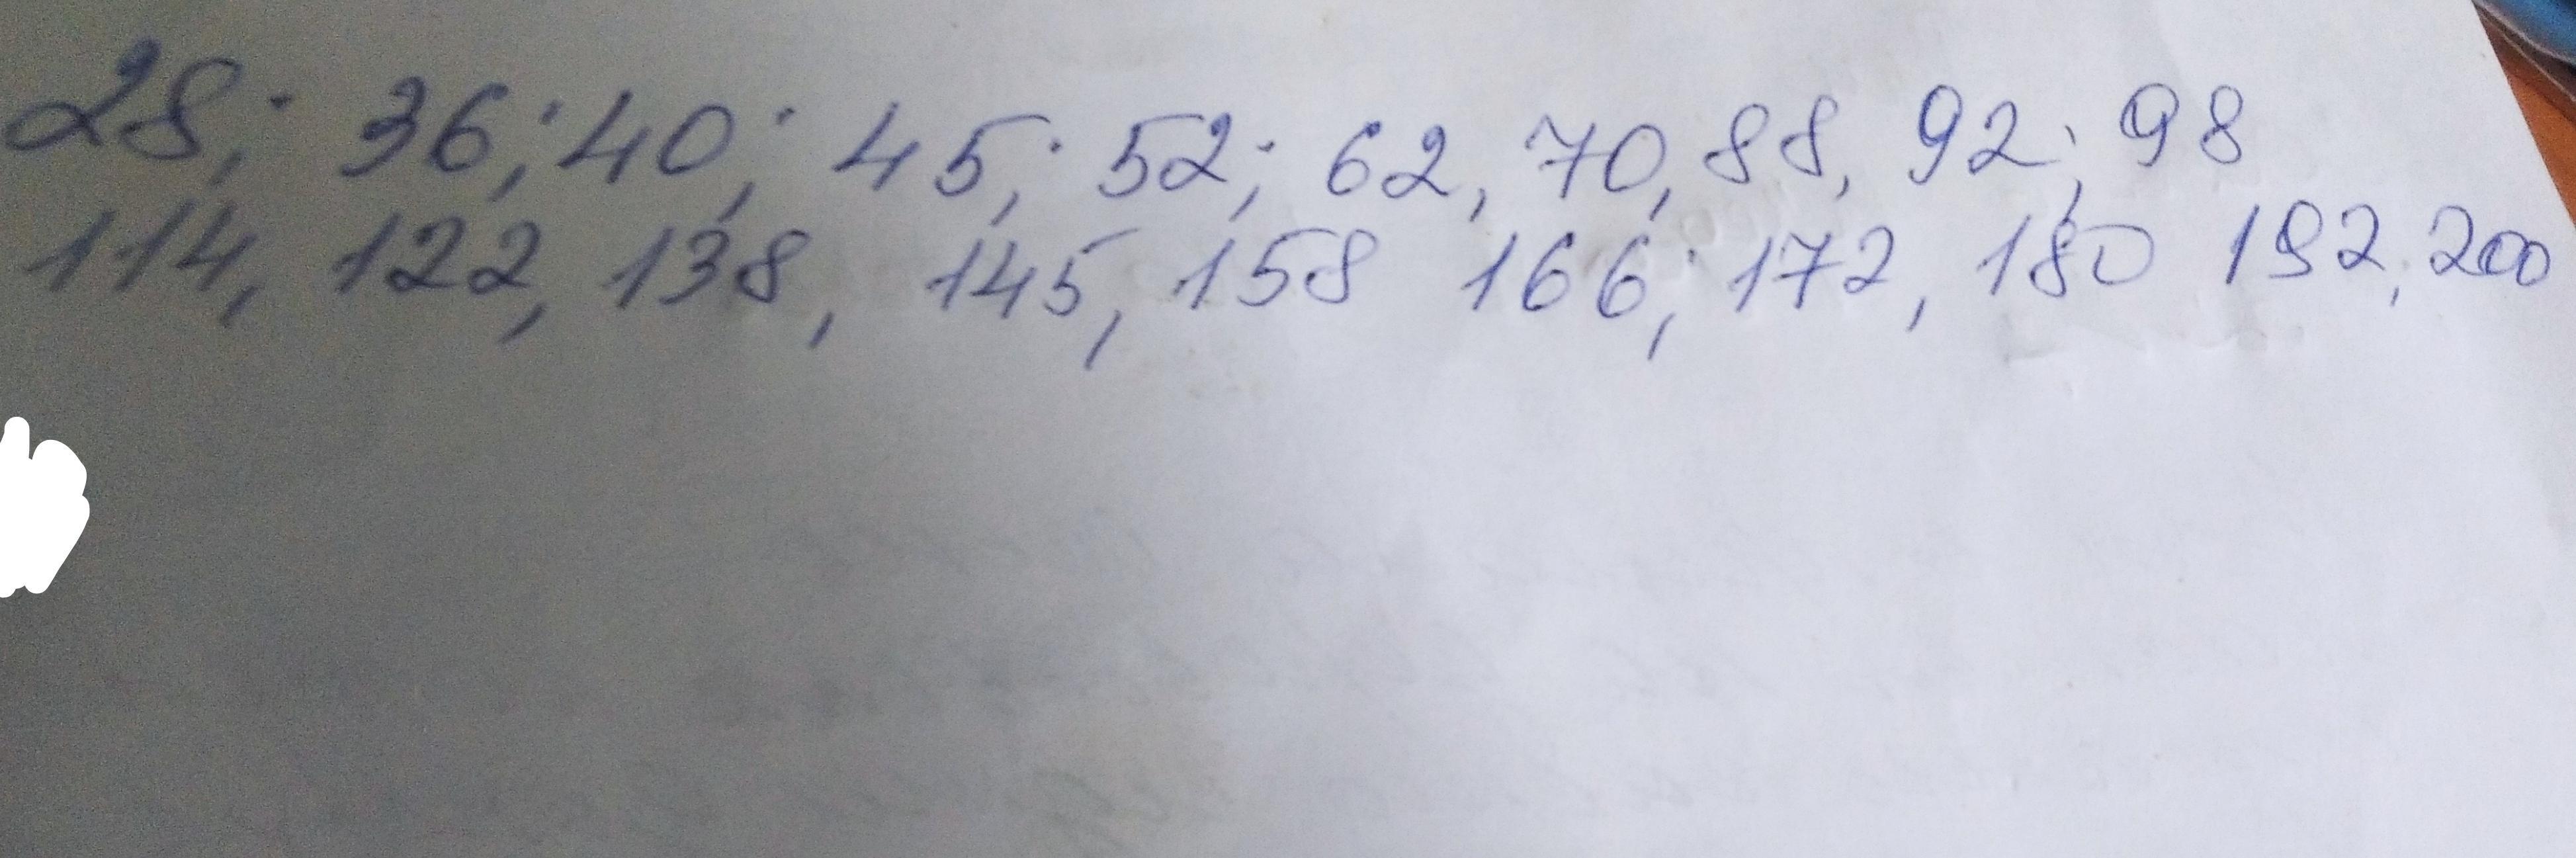 28; 36; 40; 45; 52; 62, 70, 88, 92; 98
114, 122, 138, 145, 158 166; 172, 180 192, 200